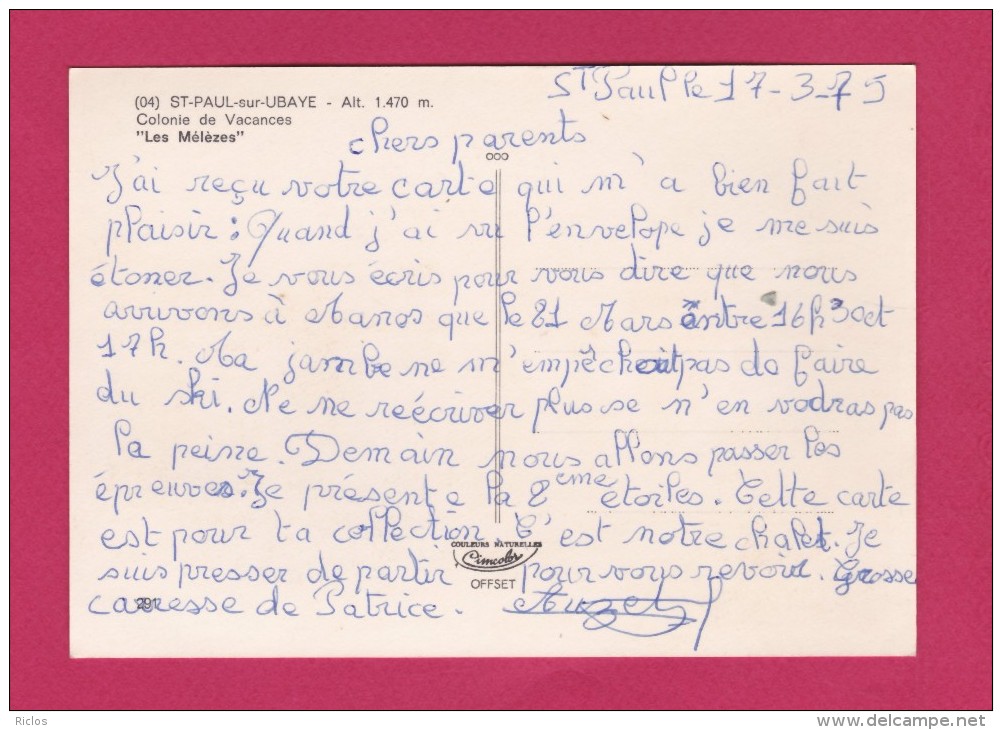 St Paul le 17-3-75
(04) ST-PAUL-sur-UBAYE - Alt. 1.470 m.
Colonie de Vacances
"Les Mélèzes"
chers parents
J'ai reçu votre carte qui m'a bien fait
plaisir; Quand j'ai vu l'envelope je me suis
étoner. Je vous écris pour vous dire que nous
arrivons à Manos que le 21 Mars entre 16h30 et
17h. Ma jambe ne m'empêche pas de faire
du ski. Ne me reécriver plus se n'en vodras pas
la peine. Demain nous allons passer les
épreuves. Je présente la 2ème étoiles. Cette carte
est pour ta collection. C'est notre chalet. Je
suis presser de partir pour vous revoir. Grosse
caresse de Patrice.
COULEURS NATURELLES
Cimcolor
OFFSET
291
Riclos
www.delcampe.net